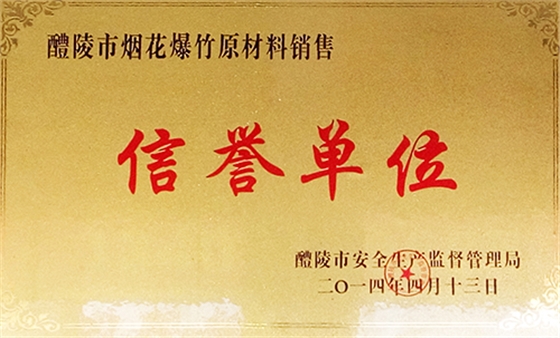 醴陵市烟花爆竹原材料销售
信誉单位
醴陵市安全生产监督管理局
二O一四年四月十三日